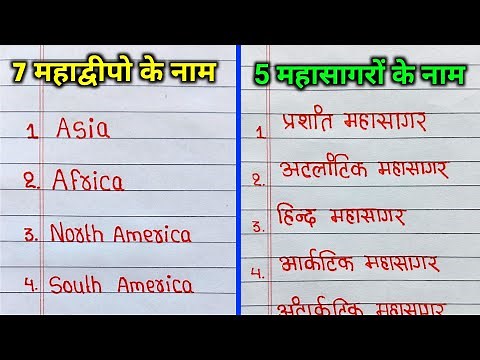 7 महाद्वीपो के नाम
1. Asia
2. Africa
3. North America
4. South America
5 महासागरों के नाम
1 प्रशांत महासागर
2. अटलांटिक महासागर
3. हिन्द महासागर
4. आर्कटिक महासागर
अंटार्कटिक महासागर